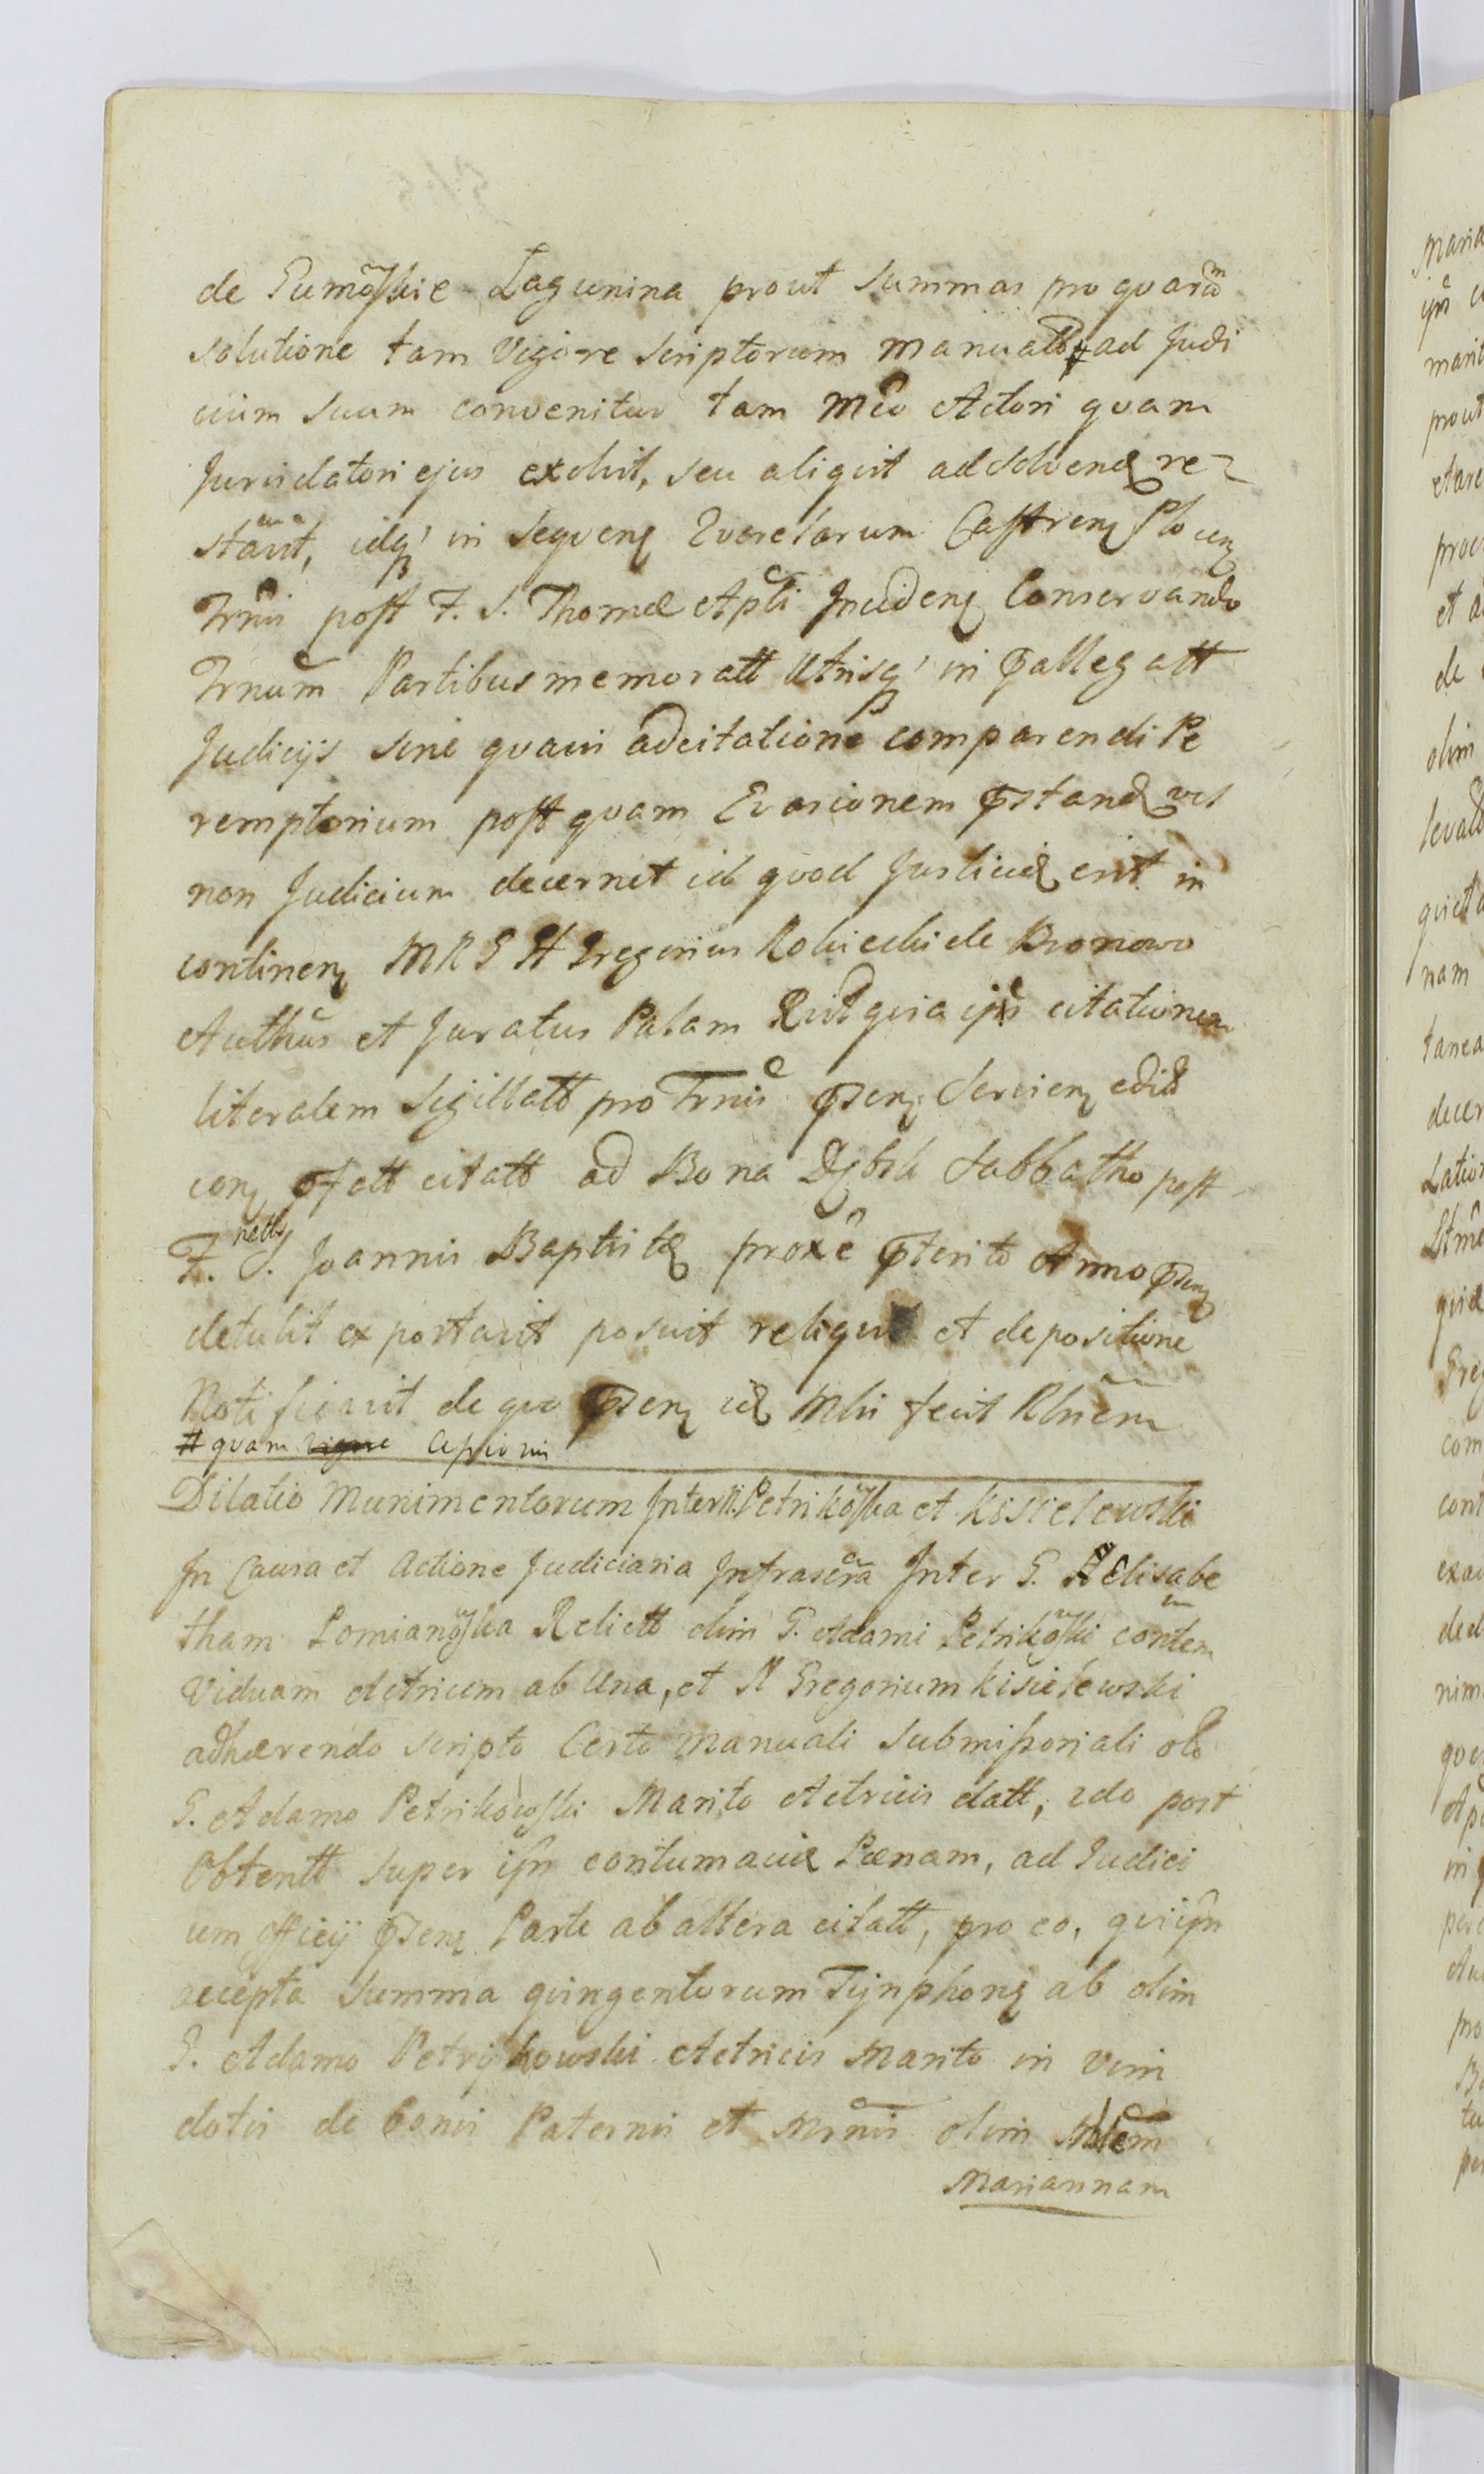 de Lagunina prout Summas pro quarm
solutione tam Vigore Scriptorum manualb # ad Judi
cium suum convenitur tam Mco Actori quam
Juridatori ejus exolvit, seu aliquid ad solvend re=
stavit, idq' in sequen Querelarum Castren Plocen
Trnis post F. S. Thomæ Apli Inciden Conservando
Trnum Partibus memoratt Utrisq' in pallegatt
Judicijs sine quavis adcitatione comparendi Pe
remptorium post quam Evasionem pstand vel
non Judicium decernet id quod Justiciæ erit in
continen MRS H Gregorius Robiecki de Bronowo
Authus et Juratus Palam Rnvit quia ijs citationem
literalem Sigillatt pro Trnis psen Servien edit
con pfatt citatt ad Bona Sabbatho post
F. natls S. Joannis Baptistæ proxe pterito Anno psen
detulit exportavit posuit reliquit et depositione
Notificavit de quo psen suæ Mhi fecit Rlnem
# quam vigore Capionis
Dilatio Munimentorum Inter N. Petrikoska et Kisielewski
In Causa et Actione Judiciaria Infrascra Inter G. Elisabe
tham Lomianoska Relictt olim G. Adami Petrikoski contem
Viduam Actricem ab Una, et N Gregorium Kisielewski
adhærendo scripto Certo manuali submissoriali olo
G. Adamo Petrikowski Marito Actricis datt, 2do post
Obtentt super ijn contumaciæ Pænam, ad Judici
um officij psen Parte ab altera citatt, pro eo, qui ijn
accepta Summa quingentorum Tynphon ab olim
G. Adamo Petrykowski Actricis Marito in vim
dotis de bonis Paternis et Mrnis olim
Mariannam